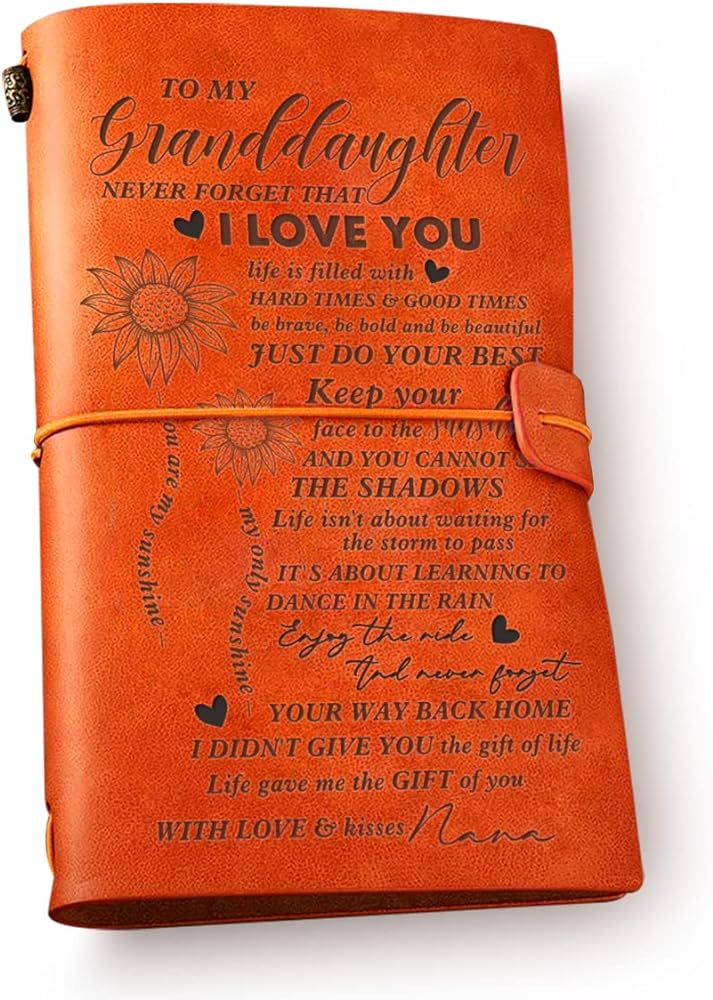 TO MY
Granddaughter
NEVER FORGET THAT
I LOVE YOU
life is filled with
HARD TIMES & GOOD TIMES
be brave, be bold and be beautiful
JUST DO YOUR BEST
Keep your
face to the
AND YOU CANNOT
THE SHADOWS
Life isn't about waiting for
the storm to pass
IT'S ABOUT LEARNING TO
DANCE IN THE RAIN
Enjoy the ride
And never forget
YOUR WAY BACK HOME
I DIDN'T GIVE YOU the gift of life
Life gave me the GIFT of you
WITH LOVE & kisses Nana
you are my sunshine
my only sunshine